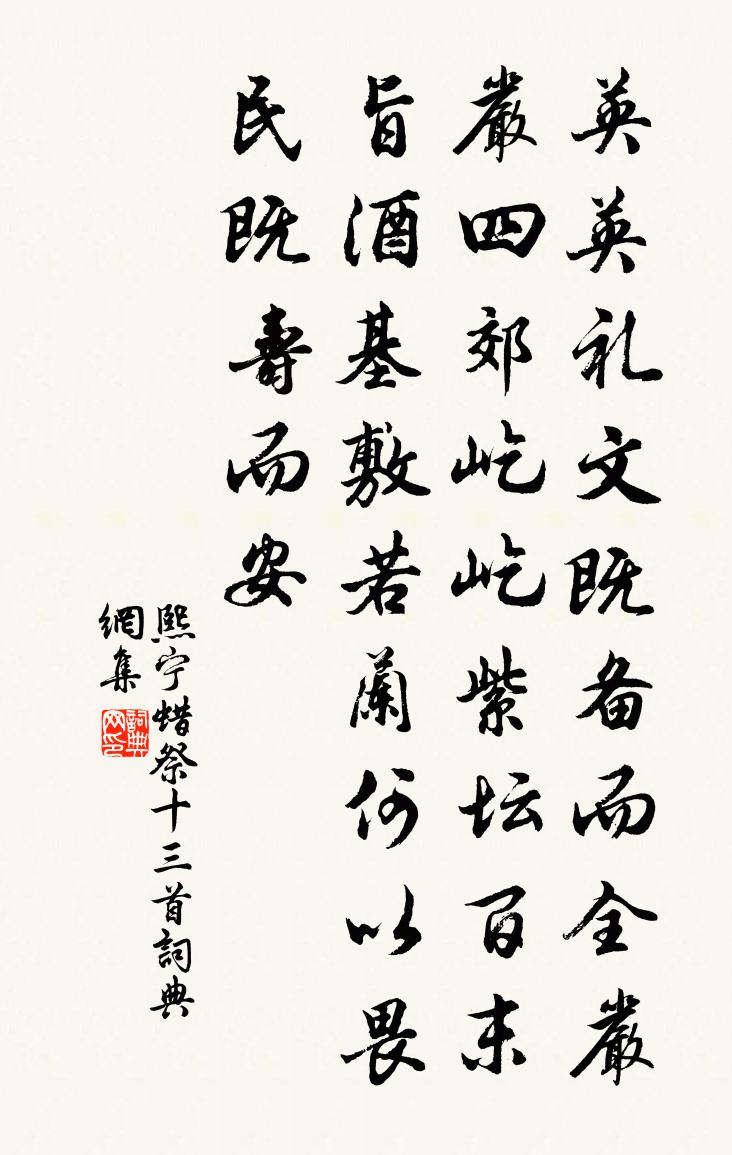 英英礼文既备而全嚴
嚴四郊屹屹紫坛百末
旨酒基敷若蘭何以畏
民既壽而安
熙宁蜡祭十三首詞典
網集
詞典网印